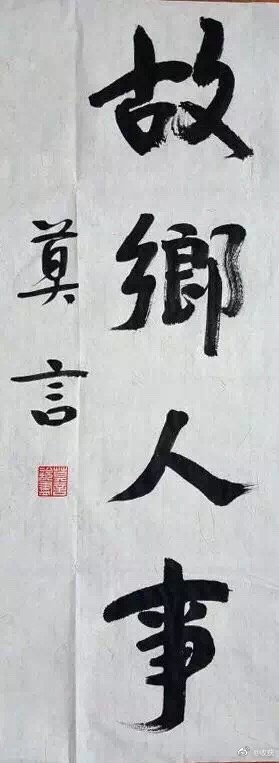 故鄉人事
莫言